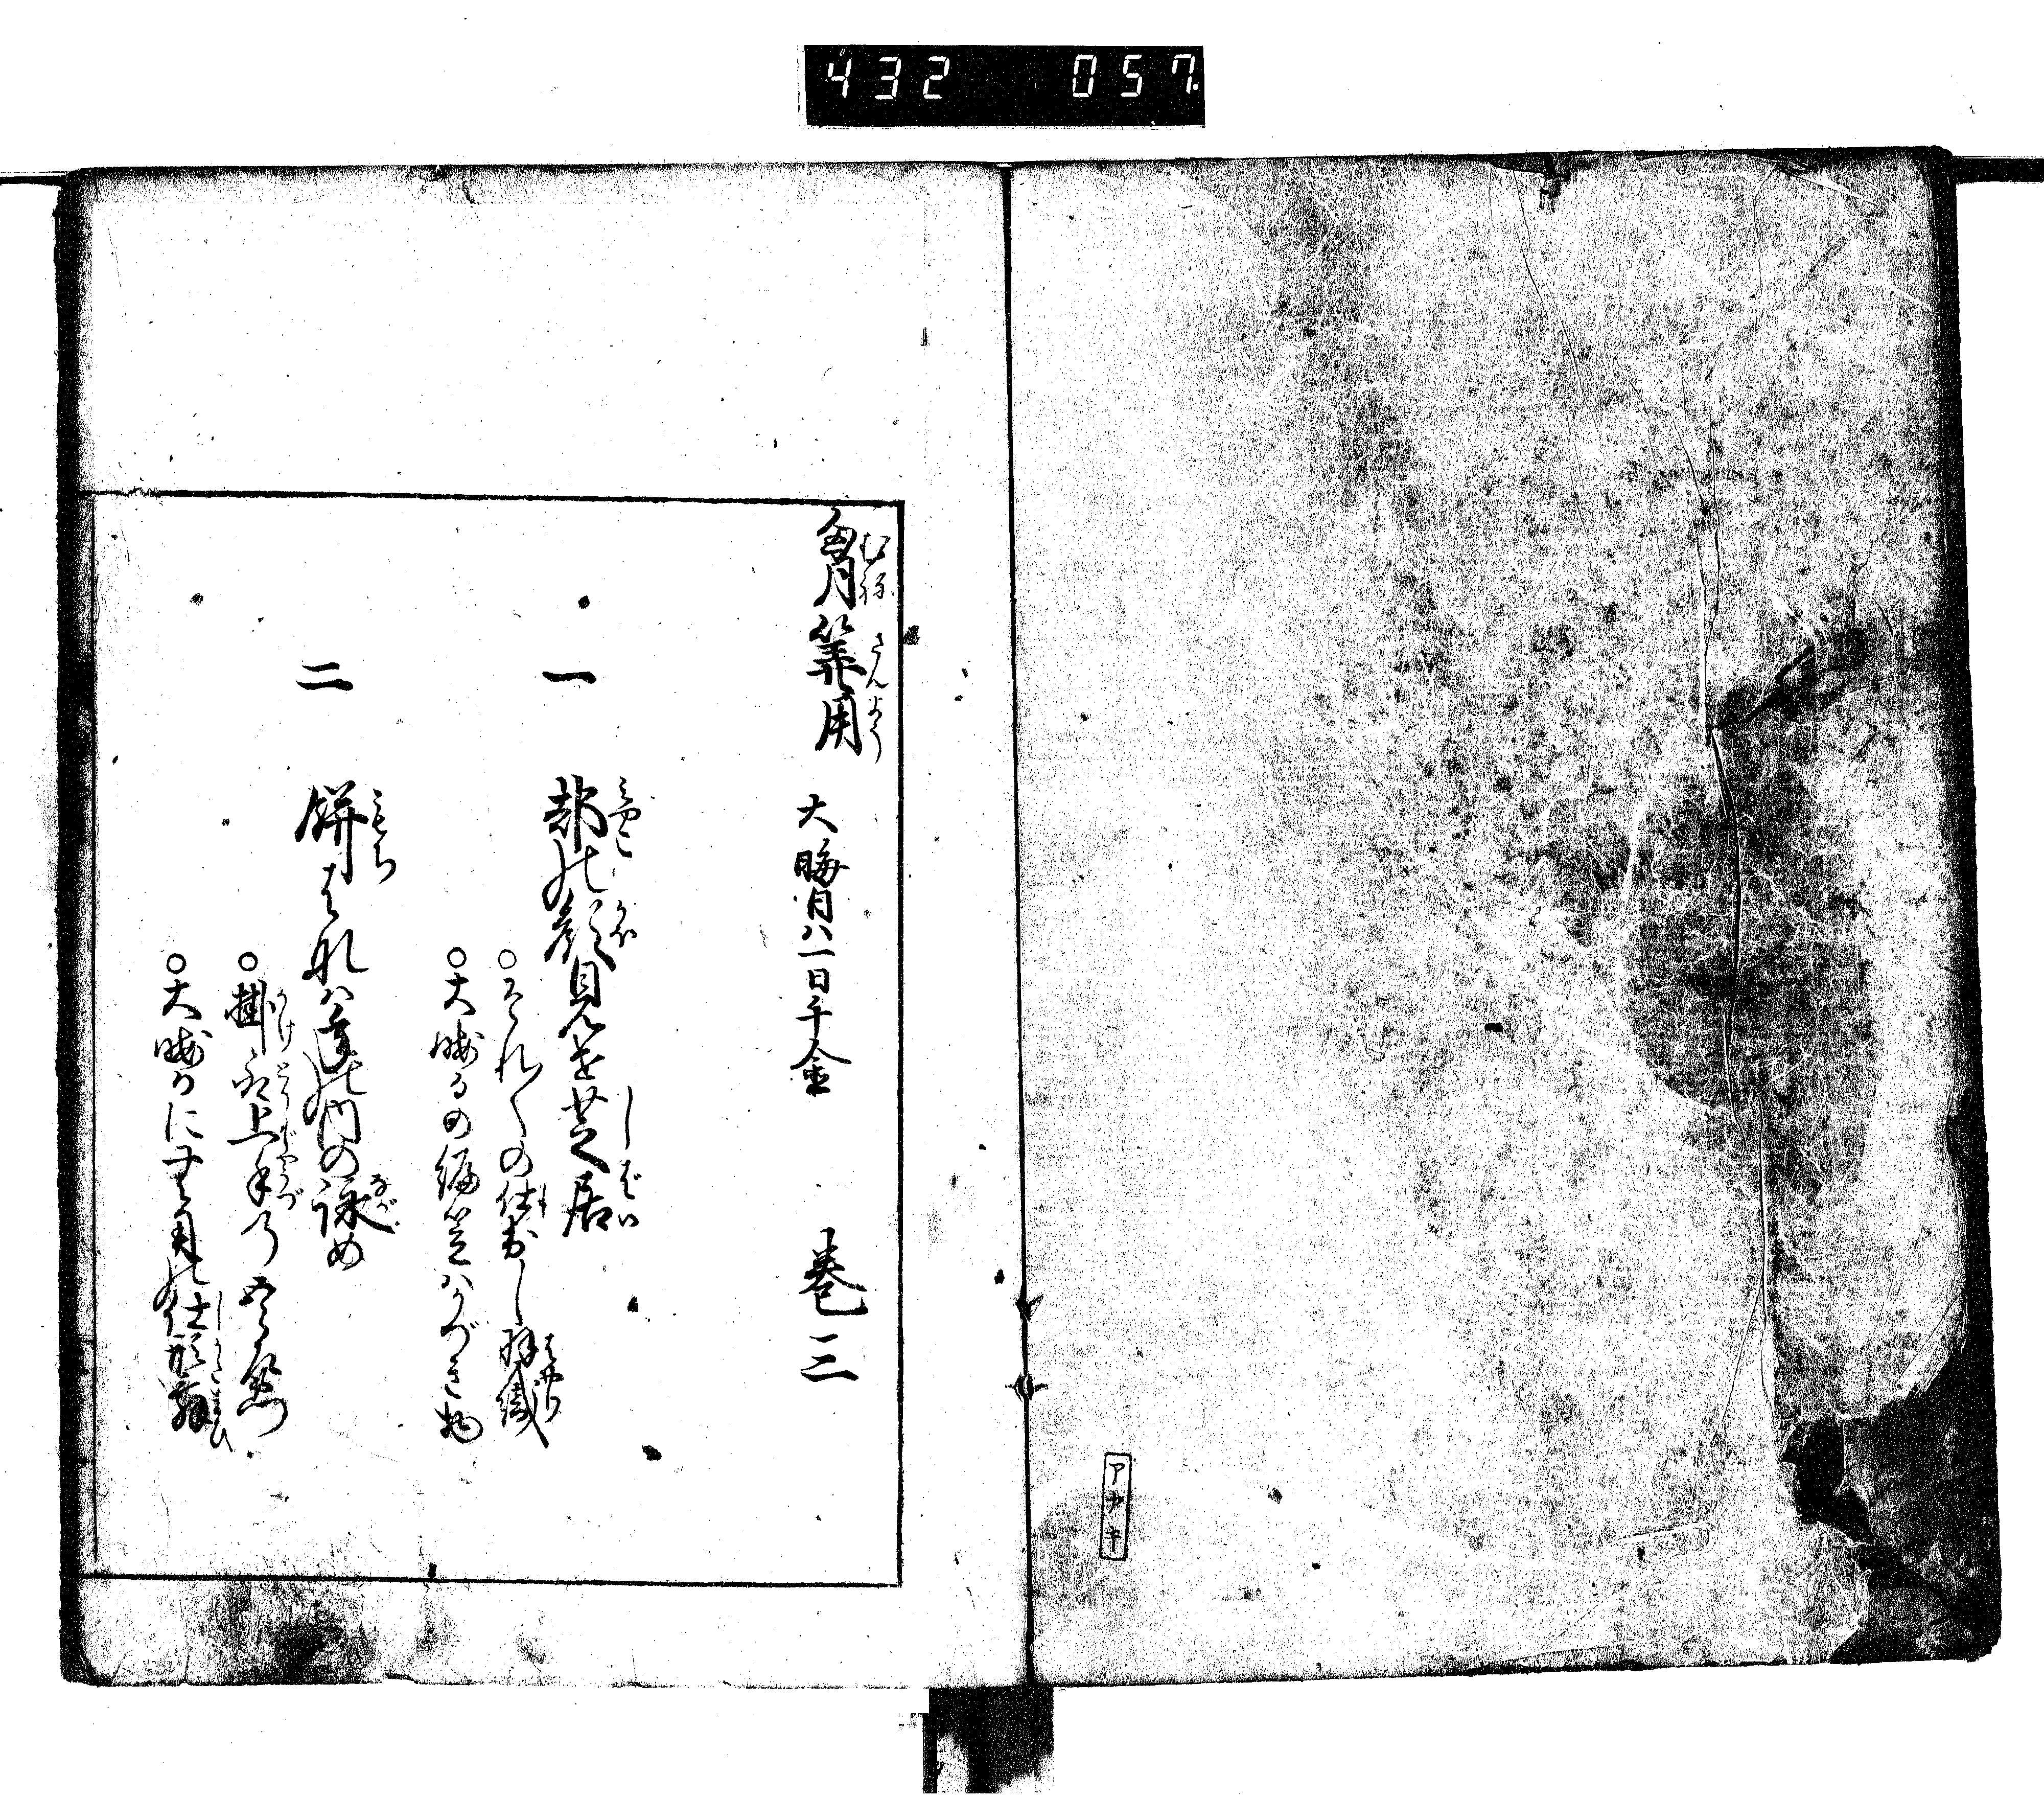 432 057.
アカキ
胸算用 大晦日ハ一日千金 巻三
一 都の顔見せ芝居
○それ〱の仕出し羽織
○大晦日の編笠ハかづき物
二 餅ばなハ年の内の詠め
○掛取上手の五郎左衛門
○大晦日に無用の仕形舞